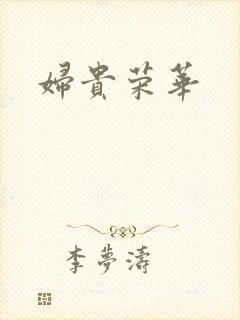 婦貴荣華
李夢濤